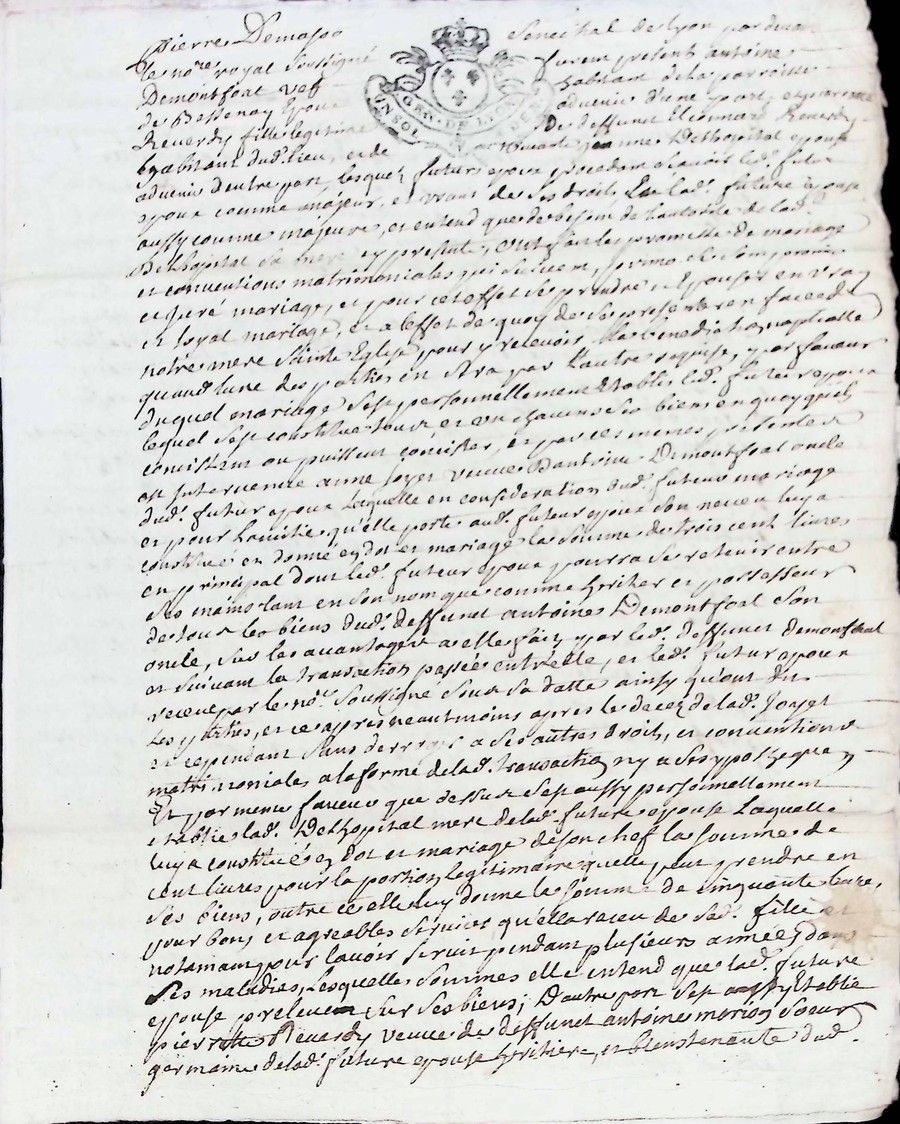 Pierre Demasso Senechal de Lyon par devant
le no.re royal soussigné furent présent antoine
Demontfoat habitant de la parroisse
de Bessenay Epoux advenir d'une part, et pierrette
Reverdy fille légitime De deffunct Reverdy
habitant dud. lieu, et de jeanne Delhopital Epouse
advenir d'autre part, lesquels futurs epoux procedant sçavoir led. futur
epoux comme majeur, et usant de ses droits, Et lad. future Epouse
aussy comme majeure, et entend que de besoin de l'autorité de lad.
Delhopital sa mere cy presente, ont fait les promesse de mariage
et conventions matrimoniales qui suivent, primo de
et juré mariage, et pour cet effet de se prendre, et Epouser en vray
et loyal mariage, et a l'effet de quoy de se presenter en face de
notre mere Sainte Eglise pour y recevoir la benediction nuptialle
quand l'une des parties en sera par l'autre requise, par faveur
duquel mariage s'est personnellement établis led. futur epoux
lequel s'est constitué tous et un chacuns ses biens en quoy qu'ils
consistent ou puissent consister, et par ces memes presentes
est intervenue anne Joyet veuve d'antoine Demontfoat oncle
dud. futur epoux Laquelle en consideration dud. futeur mariage
et pour l'amitié qu'elle porte aud. futeur epoux son neveu luy a
constitué en donne en dot et mariage la somme de trois cent livres
en principal dont led. futeur epoux pourra se retenir entre
ses mains tant en son nom que comme hyritier et possesseur
de tous les biens dud. deffunct antoine Demontfoat son
oncle, sur les avantages a elle faits par led. deffunct demontfoat
et suivant la transaction passée entr'elle, et led. futur epoux
receue par le no.re soussigné sous sa datte ainsy qu'ont dit
Les parties, et ce apres neautmoins apres le decez de lad. Joyet
et cependant sans a ses autres droits, et conventions
matrimoniales a la forme de lad. transaction ny a ses ypoteques
Et par meme faveur que dessus s'est aussy personnellement
establie lad. Delhopital mere de lad. future epouse Laquelle
luy a constitués en dot et mariage de son chef la somme de
cent livres pour la portion legitimaire quelle peut prendre en
ses biens, outre ce elle luy donne la somme de cinquante livres,
pour bons, et agreables services qu'elle a receu de sad. fille et
notamant pour lavoir servit pendant plusieurs années dans
ses maladies, Lesquelles sommes elle entend que lad. future
epouse preleve sur ses biens; D'autre part s'est aussy Establie
pierrette Reverdy veuve de deffunct antoine marion soeur
germaine de lad. future epouse hyritiere, et bientenante dud.
GEN. DE LYON